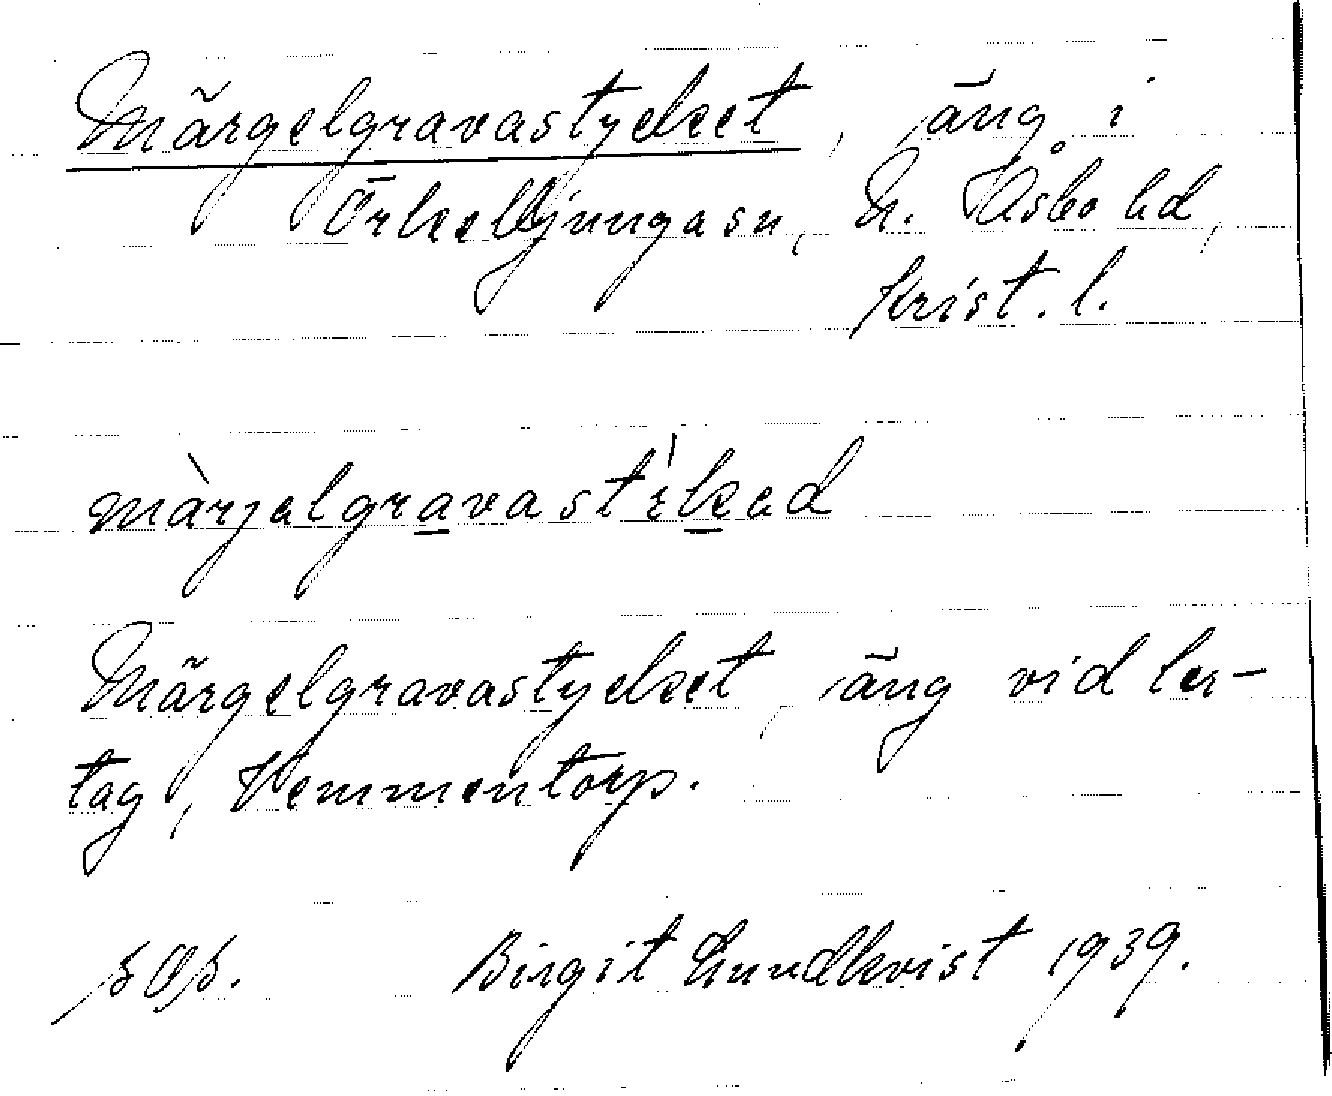 Märgelgravastycket, äng i
Örkelljunga sn, N. Åsbo hd,
Krist. l.
märjelgravastikead
Märgelgravastycket, äng vid ler-
tag, Vemmentorp.
Birgit Lundkvist 1939.